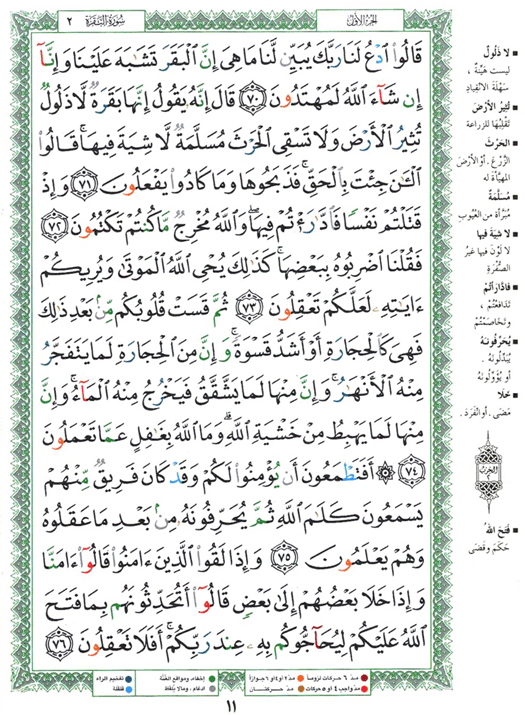 الجزء الأول
سورة البقرة ٢
قَالُوا۟ ٱدْعُ لَنَا رَبَّكَ يُبَيِّن لَّنَا مَا هِىَ إِنَّ ٱلْبَقَرَ تَشَـٰبَهَ عَلَيْنَا وَإِنَّآ
إِن شَآءَ ٱللَّهُ لَمُهْتَدُونَ ٧٠ قَالَ إِنَّهُۥ يَقُولُ إِنَّهَا بَقَرَةٌ لَّا ذَلُولٌ
تُثِيرُ ٱلْأَرْضَ وَلَا تَسْقِى ٱلْحَرْثَ مُسَلَّمَةٌ لَّا شِيَةَ فِيهَا ۚ قَالُوا۟
ٱلْـَٔـٰنَ جِئْتَ بِٱلْحَقِّ ۚ فَذَبَحُوهَا وَمَا كَادُوا۟ يَفْعَلُونَ ٧١ وَإِذْ
قَتَلْتُمْ نَفْسًا فَٱدَّٰرَْٰٔتُمْ فِيهَا ۖ وَٱللَّهُ مُخْرِجٌ مَّا كُنتُمْ تَكْتُمُونَ ٧٢
فَقُلْنَا ٱضْرِبُوهُ بِبَعْضِهَا ۚ كَذَٰلِكَ يُحْىِ ٱللَّهُ ٱلْمَوْتَىٰ وَيُرِيكُمْ
ءَايَـٰتِهِۦ لَعَلَّكُمْ تَعْقِلُونَ ٧٣ ثُمَّ قَسَتْ قُلُوبُكُم مِّنۢ بَعْدِ ذَٰلِكَ
فَهِىَ كَٱلْحِجَارَةِ أَوْ أَشَدُّ قَسْوَةً ۚ وَإِنَّ مِنَ ٱلْحِجَارَةِ لَمَا يَتَفَجَّرُ
مِنْهُ ٱلْأَنْهَـٰرُ ۚ وَإِنَّ مِنْهَا لَمَا يَشَّقَّقُ فَيَخْرُجُ مِنْهُ ٱلْمَآءُ ۚ وَإِنَّ
مِنْهَا لَمَا يَهْبِطُ مِنْ خَشْيَةِ ٱللَّهِ ۗ وَمَا ٱللَّهُ بِغَـٰفِلٍ عَمَّا تَعْمَلُونَ
٧٤ ۞ أَفَتَطْمَعُونَ أَن يُؤْمِنُوا۟ لَكُمْ وَقَدْ كَانَ فَرِيقٌ مِّنْهُمْ
يَسْمَعُونَ كَلَـٰمَ ٱللَّهِ ثُمَّ يُحَرِّفُونَهُۥ مِنۢ بَعْدِ مَا عَقَلُوهُ
وَهُمْ يَعْلَمُونَ ٧٥ وَإِذَا لَقُوا۟ ٱلَّذِينَ ءَامَنُوا۟ قَالُوٓا۟ ءَامَنَّا
وَإِذَا خَلَا بَعْضُهُمْ إِلَىٰ بَعْضٍ قَالُوٓا۟ أَتُحَدِّثُونَهُم بِمَا فَتَحَ
ٱللَّهُ عَلَيْكُمْ لِيُحَآجُّوكُم بِهِۦ عِندَ رَبِّكُمْ ۚ أَفَلَا تَعْقِلُونَ ٧٦
■ لا ذَلُولٌ
ليست هَيِّنَة ،
سَهْلَةَ الانْقِيادِ
■ تُثِيرُ الأَرْضَ
تَقْلِبُهَا للزراعة
■ الحَرْثَ
الزَّرْعَ . أو الأرْضَ
المهيَّأة له
■ مُسَلَّمَةٌ
مُبَرَّأة من العُيُوبِ
■ لا شِيَةَ فيها
لا لَوْنَ فيها غيرُ
الصُّفْرَةِ
■ فادّارَأتُمْ
تَدَافَعْتُمْ ،
وتَخَاصَمْتُمْ
■ يُحَرِّفُونَهُ
يُبَدِّلُونَهُ .
أو يُؤَوِّلُونَهُ
■ خَلَا
مَضَى . أو انْفَرَدَ .
الحزب
٢
■ فَتَحَ اللّهُ
حَكَمَ وقَضَى
مدّ ٦ حركات لزوماً
مدّ ٢ أو ٤ أو ٦ جوازاً
إخفاء، ومواقع الغُنَّة
تفخيم الراء
مدّ واجب ٤ أو ٥ حركات
مدّ حركتان
ادغام ، وما لا يُلفَظ
قلقلة
١١